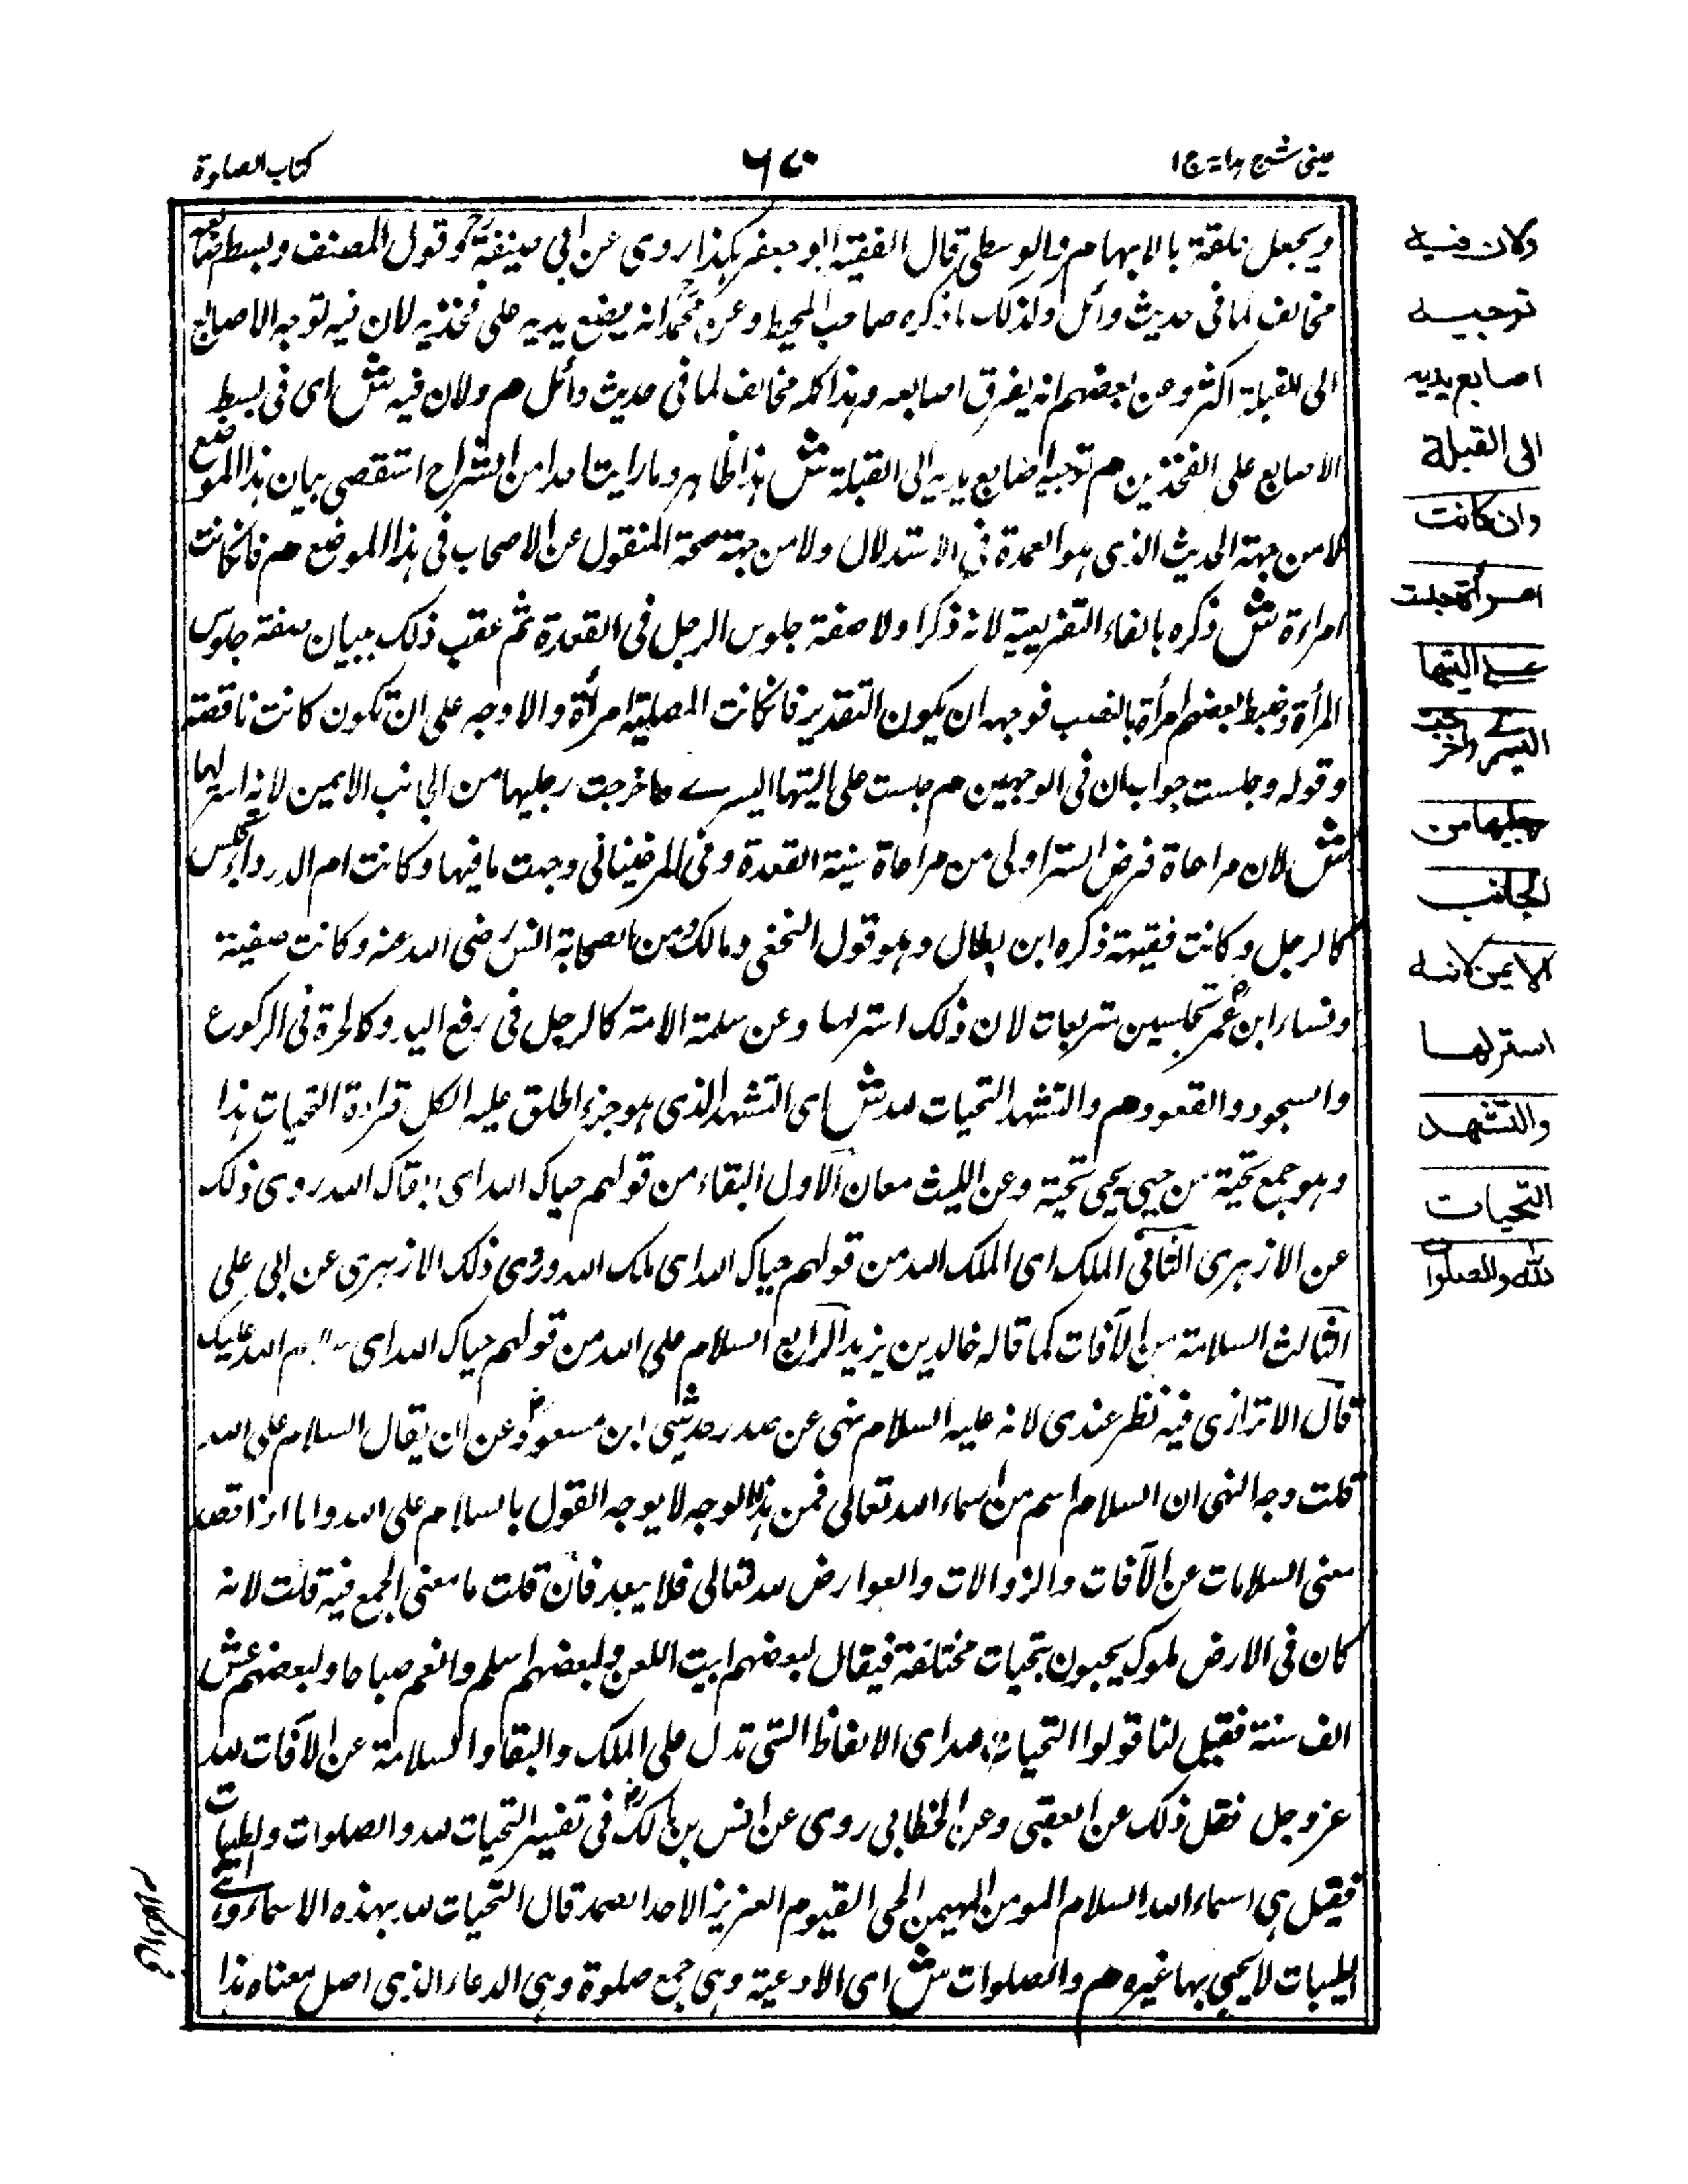 عینی شرح ہدایۃ ج۱
۶۸۰
کتاب الصلوۃ
ویجعل حلقة بالابهام والوسطى قال الفقيه ابو جعفر هكذا روى عن ابى حنيفة وقول المصنف وبسط اصابعه
مخالف لما فى حديث وائل ولذلك ما ذكره صاحب المحيط وعن محمد انه يضع يديه على فخذيه لان فيه توجه الاصابع
الى القبلة اكثر وعن بعضهم انه يفرق اصابعه وهذا كله مخالف لما فى حديث وائل م ولان فيه ش اى فى بسط
الاصابع على الفخذين م توجيه اصابع يديه الى القبلة ش هذا ظاهر وما رايت احدا من الشراح استقصى بيان هذا الموضع
لا من جهة الحديث الذى هو العمدة فى الاستدلال ولا من جهة صحة المنقول عن الاصحاب فى هذا الموضع م فان كانت
امراءة ش ذكره بالفاء التفريعية لانه ذكر اولا صفة جلوس الرجل فى القعدة ثم عقب ذلك ببيان صفة جلوس
المرأة وضبط بعضهم امرأة بالنصب فوجهه ان يكون التقدير فان كانت المصلية امرأة والاوجه على ان تكون كانت ناقصة
وقوله وجلست جواب ان فى الوجهين م جلست على اليتها اليسرے فاخرجت رجليها من الجانب الايمن لانه استر لها
ش لان مراعاة فرض الستر اولى من مراعاة سنية القعدة وفى المرغينانى وجهت ما فيها وكانت ام الدرداء تجلس
كالرجل وكانت فقيهة ذكره ابن بطال وهو قول النخعى ومالك ومن الصحابة انس رضى الله عنه وكانت صفية
ونساء ابن عمر تجلسين متربعات لان ذلك استر لها وعن سلمة الامة كالرجل فى رفع اليد وكالحرة فى الركوع
والسجود والقعود م والتشهد التحيات لله ش اى التشهد الذى هو جزء اطلق عليه الكل قراءة التحيات هذا
وهو جمع تحية من حيى يحيى تحية وعن الليث معان الاول البقاء من قولهم حياك الله اى ابقاك الله روى ذلك
عن الازهرى الثانى الملك اى الملك لله من قولهم حياك الله اى ملك الله وروى ذلك الازهرى عن ابى على
الثالث السلامة من الآفات كما قاله خالد بن يزيد الرابع السلام على الله من قولهم حياك الله اى سلام الله عليك
قال الاترازى فيه نظر عندى لانه عليه السلام نهى عن صدر حديثى ابن مسعود عن ان يقال السلام على الله
قلت وجه النهى ان السلام اسم من اسماء الله تعالى فمن هذا الوجه لا يوجه القول بالسلام على الله واما اذا قصد
معنى السلامات عن الآفات والزوالات والعوارض لله تعالى فلا يبعد فان قلت ما معنى الجمع فيه قلت لانه
كان فى الارض ملوك يحيون بتحيات مختلفة فيقال لبعضهم ابيت اللعن ولبعضهم اسلم وانعم صباحا ولبعضهم عش
الف سنة فقيل لنا قولوا التحيات لله اى الالفاظ التى تدل على الملك والبقاء والسلامة عن الآفات لله
عز وجل نقل ذلك عن العقبى وعن الخطابى روى عن انس بن مالك فى تفسير التحيات لله والصلوات والطيبات
فقيل هى اسماء الله السلام المومن المهيمن الحى القيوم العزيز الاحد الصمد قال التحيات لله بهذه الاسماء
الطيبات لا يحيى بها غيره م والصلوات ش اى الادعية وهى جمع صلوة وهى الدعاء الذى اصل معناه هذا
ولان فيه
توجيه
اصابع يديه
الى القبلة
وان كانت
امرأة جلست
على اليتها
اليسرى واخرجت
رجليها من
الجانب
الايمن لانه
استر لها
والتشهد
التحيات
لله والصلوات